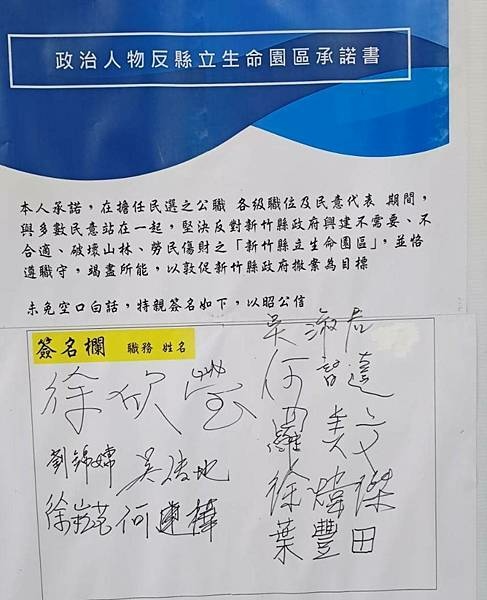 政治人物反縣立生命園區承諾書
本人承諾，在擔任民選之公職 各級職位及民意代表 期間，
與多數民意站在一起，堅決反對新竹縣政府興建不需要、不
合適、破壞山林、勞民傷財之「新竹縣立生命園區」，並恪
遵職守，竭盡所能，以敦促新竹縣政府撤案為目標
未免空口白話，特親簽名如下，以昭公信
簽名欄 職務 姓名
徐欣瑩
劉錦嬬
何建樺
吳淑君
何智達
羅美文
徐煒傑
葉豐田